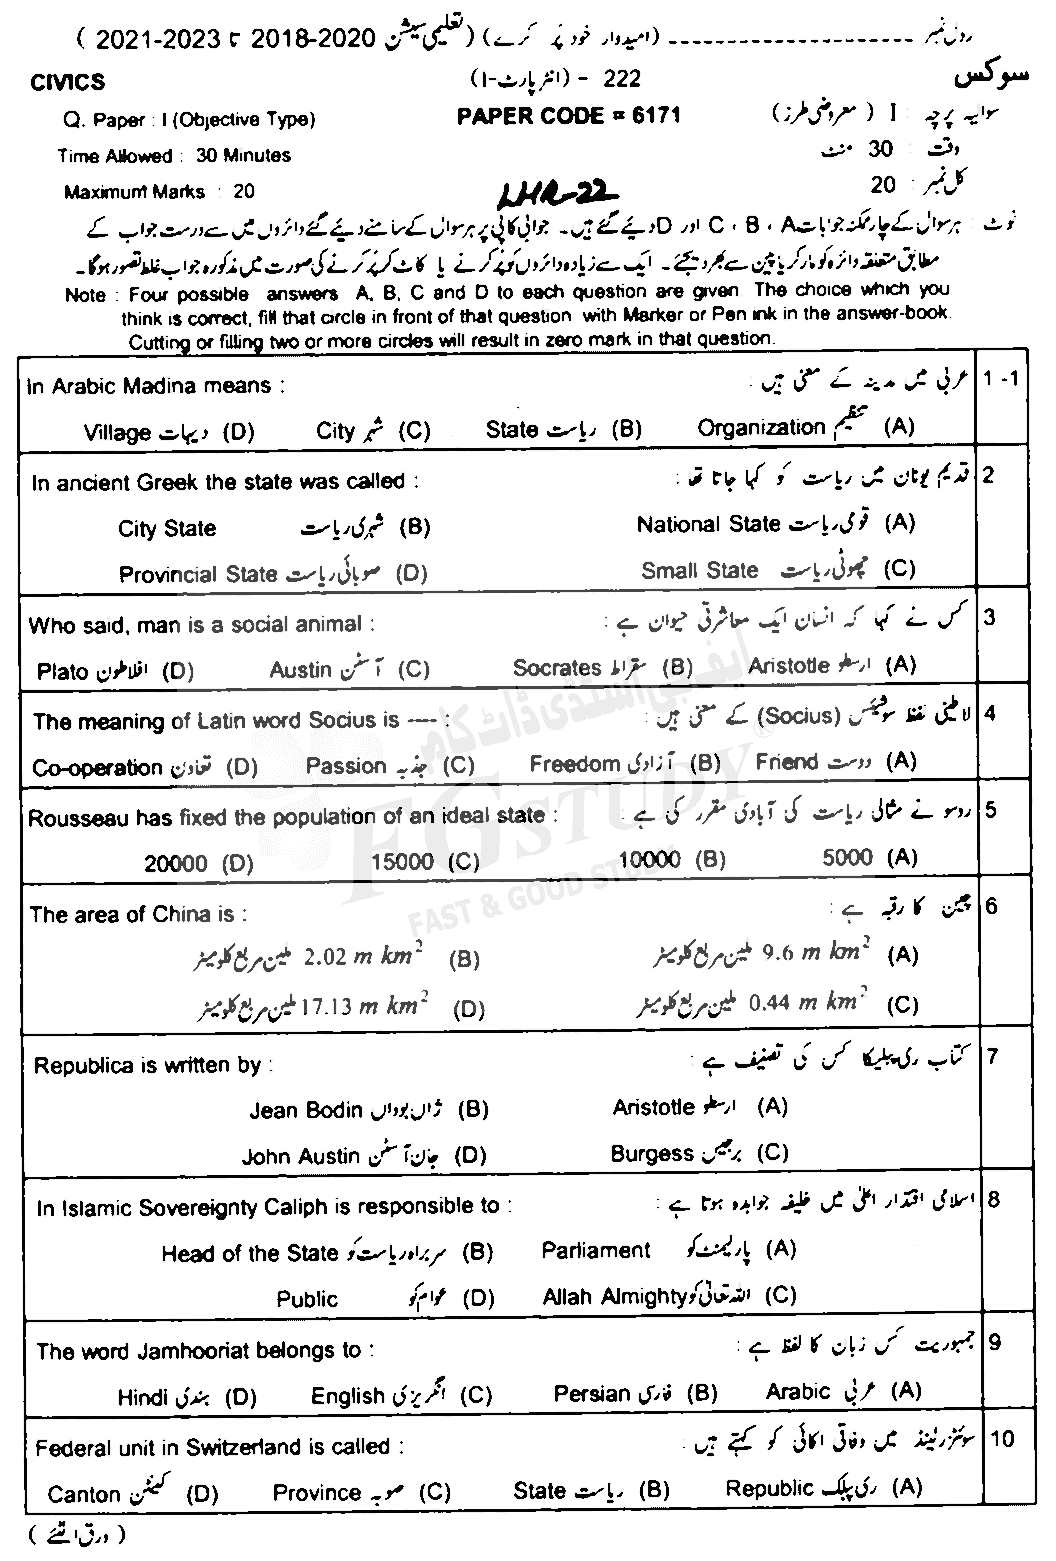 رول نمبر ---------------------- (امیدوار خود پُر کرے) (تعلیمی سیشن 2020-2018 تا 2023-2021 )
CIVICS 222 - (انٹر پارٹ-I) سوکس
Q. Paper : I (Objective Type) PAPER CODE = 6171 سوالیہ پرچہ : I ( معروضی طرز)
Time Allowed : 30 Minutes وقت : 30 منٹ
Maximum Marks : 20 LHR-22 کل نمبر : 20
نوٹ : ہر سوال کے چار ممکنہ جوابات A ، B ، C اور D دیے گئے ہیں۔ جوابی کاپی پر ہر سوال کے سامنے دیے گئے دائروں میں سے درست جواب کے
مطابق متعلقہ دائرہ کو مارکر یا پین سے بھر دیجئے۔ ایک سے زیادہ دائروں کو پُر کرنے یا کاٹ کر پُر کرنے کی صورت میں مذکورہ جواب غلط تصور ہوگا۔
Note : Four possible answers A, B, C and D to each question are given. The choice which you
think is correct, fill that circle in front of that question with Marker or Pen ink in the answer-book.
Cutting or filling two or more circles will result in zero mark in that question.
In Arabic Madina means : عربی میں مدینہ کے معنی ہیں : 1-1
Village دیہات (D) City شہر (C) State ریاست (B) Organization تنظیم (A)
In ancient Greek the state was called : قدیم یونان میں ریاست کو کہا جاتا تھا : 2
City State شہری ریاست (B) National State قومی ریاست (A)
Provincial State صوبائی ریاست (D) Small State چھوٹی ریاست (C)
Who said, man is a social animal : کس نے کہا کہ انسان ایک معاشرتی حیوان ہے : 3
Plato افلاطون (D) Austin آسٹن (C) Socrates سقراط (B) Aristotle ارسطو (A)
The meaning of Latin word Socius is ---- : لاطینی لفظ سوشیئس (Socius) کے معنی ہیں : 4
Co-operation تعاون (D) Passion جذبہ (C) Freedom آزادی (B) Friend دوست (A)
Rousseau has fixed the population of an ideal state : روسو نے مثالی ریاست کی آبادی مقرر کی ہے : 5
20000 (D) 15000 (C) 10000 (B) 5000 (A)
The area of China is : چین کا رقبہ ہے : 6
2.02 m km² ملین مربع کلومیٹر (B) 9.6 m km² ملین مربع کلومیٹر (A)
17.13 m km² ملین مربع کلومیٹر (D) 0.44 m km² ملین مربع کلومیٹر (C)
Republica is written by : کتاب ری پبلیکا کس کی تصنیف ہے : 7
Jean Bodin ژاں بوداں (B) Aristotle ارسطو (A)
John Austin جان آسٹن (D) Burgess برجیس (C)
In Islamic Sovereignty Caliph is responsible to : اسلامی اقتدار اعلیٰ میں خلیفہ جوابدہ ہوتا ہے : 8
Head of the State سربراہ ریاست کو (B) Parliament پارلیمنٹ کو (A)
Public عوام کو (D) Allah Almighty اللہ تعالیٰ کو (C)
The word Jamhooriat belongs to : جمہوریت کس زبان کا لفظ ہے : 9
Hindi ہندی (D) English انگریزی (C) Persian فارسی (B) Arabic عربی (A)
Federal unit in Switzerland is called : سوئٹزرلینڈ میں وفاقی اکائی کو کہتے ہیں : 10
Canton کینٹن (D) Province صوبہ (C) State ریاست (B) Republic ری پبلک (A)
( ورق الٹئے )
ایف جی اسٹڈی ڈاٹ کام
FG STUDY®
FAST & GOOD STUDY